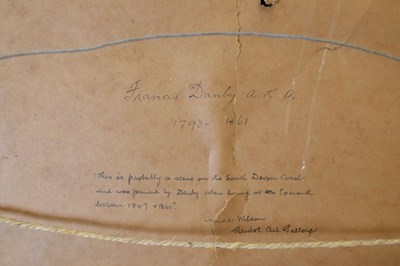 Francis Danby A.R.A.
1793 - 1861
"This is probably a scene on the South Devon Coast
and was painted by Danby when living at Exmouth
between 1847 & 1861".
Wilson
Bristol Art Gallery